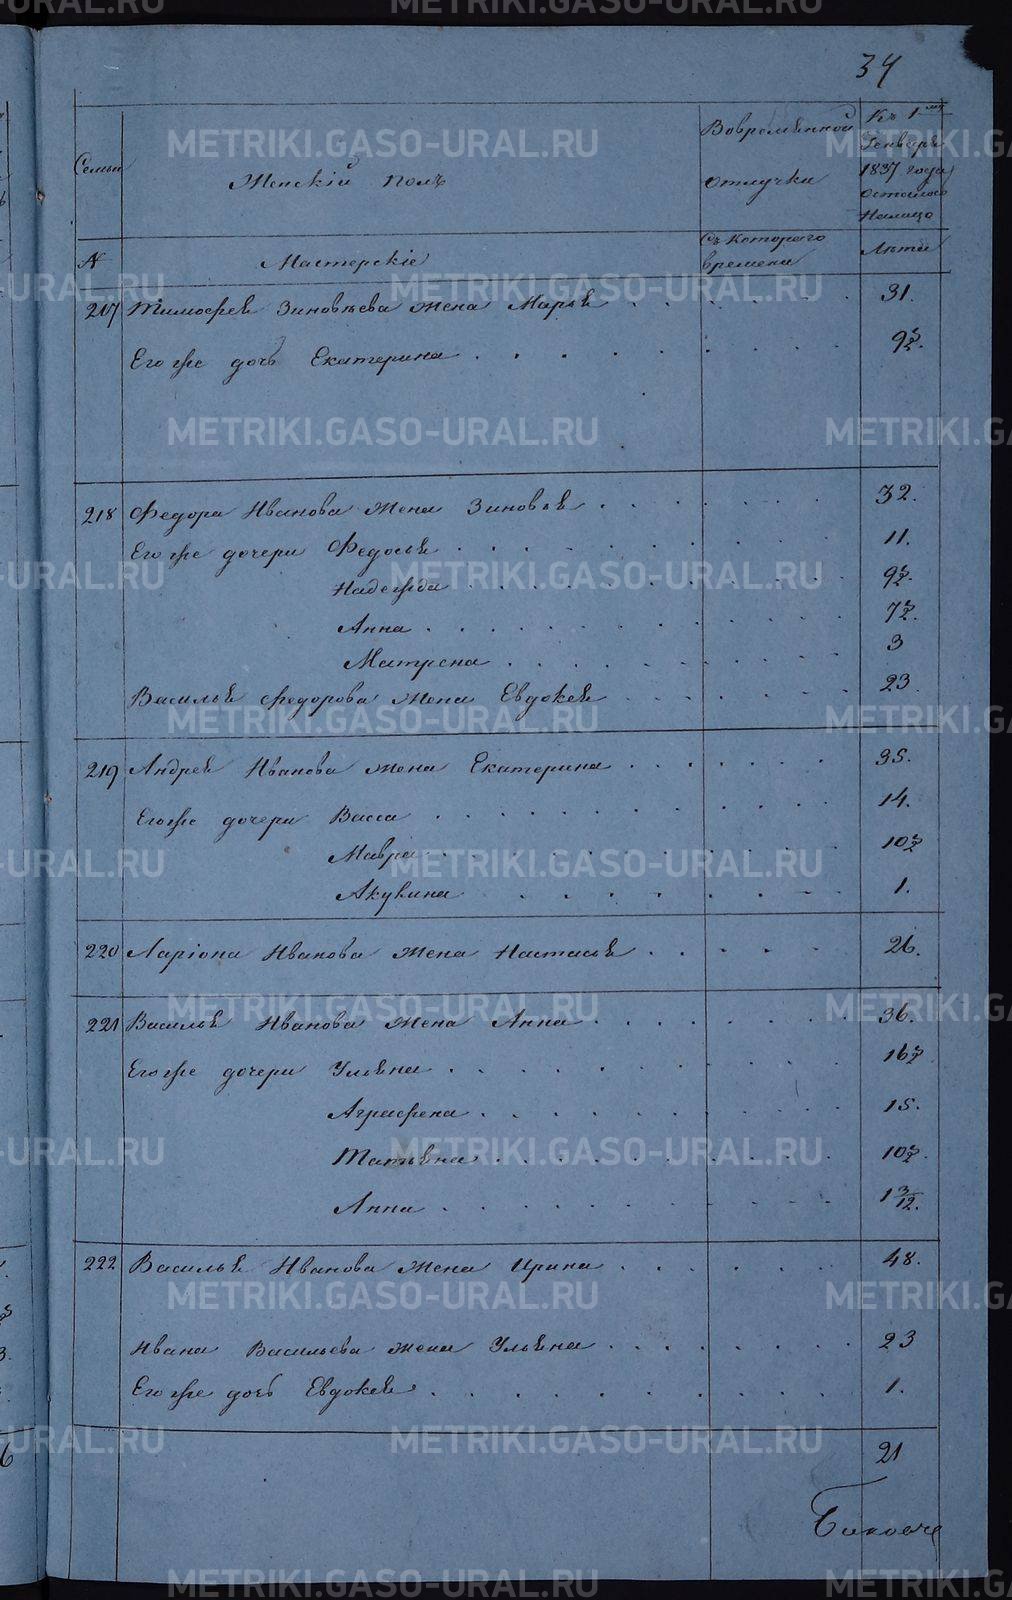 34
Семьи
Женскiй полъ
Вовременной
отлучки
Къ 1
Генваря
1837 года
осталось
Налицо
N
Мастерскiе
Съ которого
времени
Лѣта
217 Тимофея Зиновьева жена Марья 31.
Его же дочь Екатерина 9½.
218 Федора Иванова жена Зиновья 32.
Его же дочери Федосья 11.
Надежда 9½.
Анна 7½.
Матрена 3
Василья Федорова жена Евдокея 23
219 Андрея Иванова жена Екатерина 35.
Его же дочери Васса 14.
Мавра 10½
Акулина 1.
220 Ларiона Иванова жена Настасья 26.
221 Василья Иванова жена Анна 36.
Его же дочери Ульяна 16½
Аграфена 15.
Татьяна 10½.
Анна 1 3/12.
222 Василья Иванова жена Ирина 48.
Ивана Васильева жена Ульяна 23
Его же дочь Евдокея 1.
21
METRIKI.GASO-URAL.RU